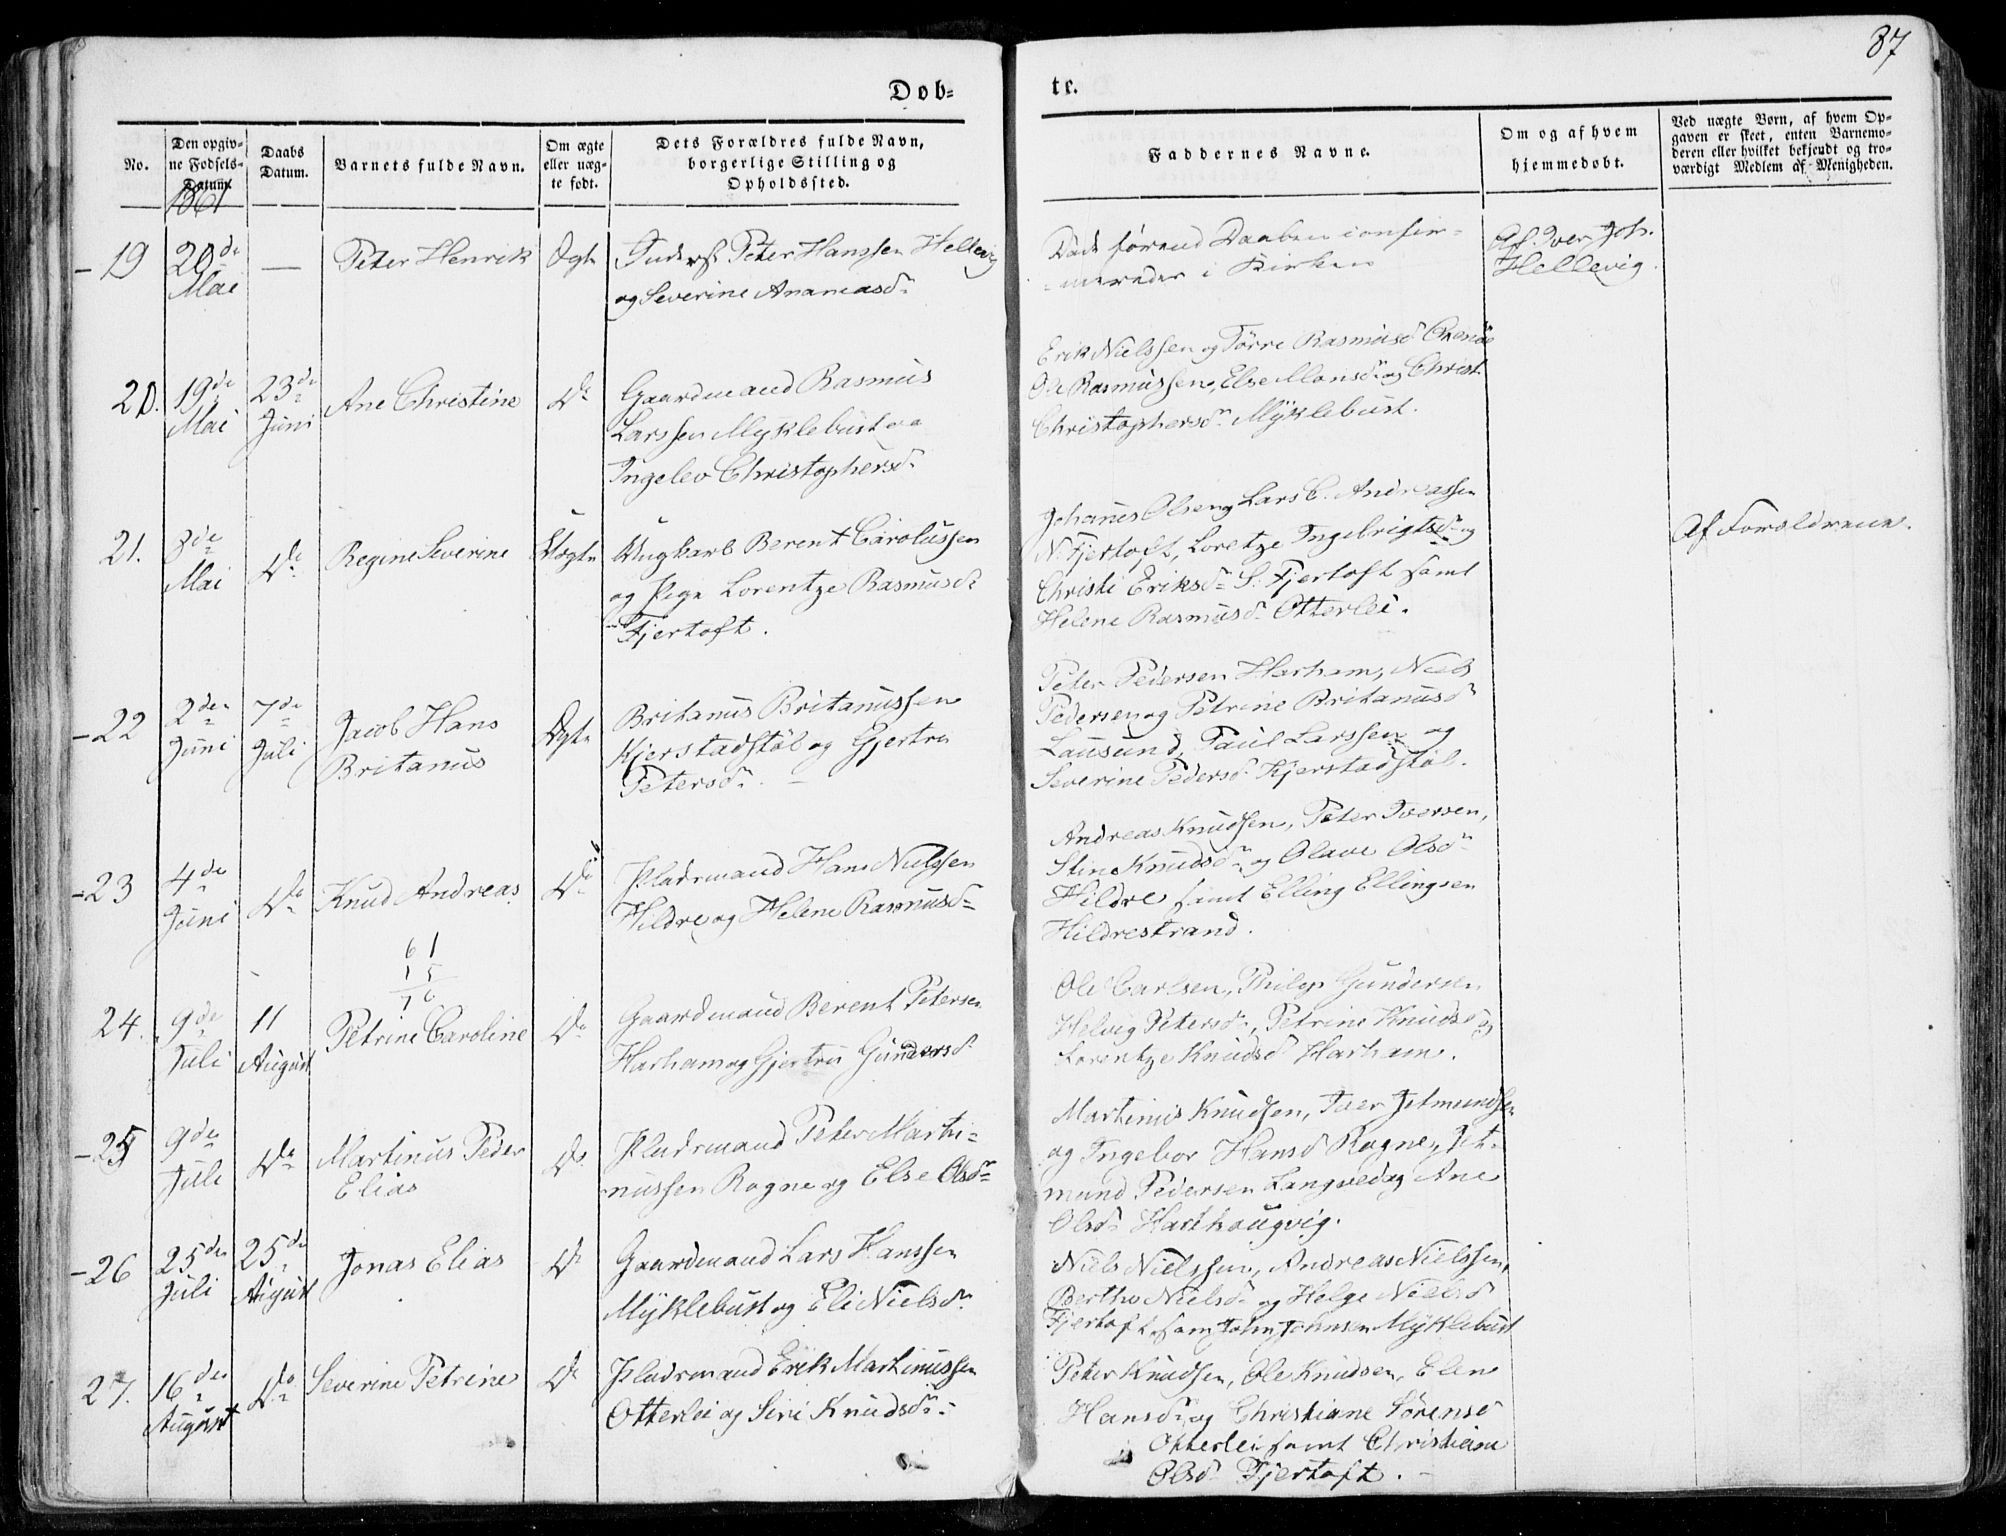 87
Døb-
te.
No.
Den opgiv-
ne Fødsels-
Datum.
Daabs
Datum.
Barnets fulde Navn.
Om ægte
eller uæg-
te født.
Dets Forældres fulde Navn,
borgerlige Stilling og
Opholdssted.
Faddernes Navne.
Om og af hvem
hjemmedøbt.
Ved uægte Børn, af hvem Op-
gaven er skeet, enten Barnemo-
deren eller hvilket bekjendt og tro-
værdigt Medlem af Menigheden.
1861
19
20de
Mai
—
Peter Henrik
Ægte
Peter Hanssen Hellevig
og Severine Ananiasdr
Død førend Daaben
i Kirken
Af Iver Joh.
Hellevig.
20.
19de
Mai
23de
Juni
Ane Christine
Do
Gaardmand Rasmus
Larssen Myklebust og
Ingelev Christophersdr
Erik Nielssen og Tørre Rasmusd
Ole Rasmussen, Else Monsdr og Christ.
Christophersdr Myklebust.
21.
3de
Mai
Do
Regine Severine
Uægte
Ungkarl Berent Carolussen
og Pige Lorentze Rasmusdr
Fjertoft.
Johannes Olsen og Lars C. Andreassen
N. Fjertoft, Loretze Ingebrigtsdr og
Christi Eriksdr S. Fjertoft samt
Helene Rasmusdr Otterlei.
Af Forældrene.
22
2den
Juni
7de
Juli
Jacob Hans
Britanus
Ægte
Britanus Britanussen
Kjerstadstøl og Gjertru
Petersdr. —
Peter Pedersen Harham, Niels
Pedersen og Petrine Britanusdr
Lausund, Paul Larssen og
Severine Pedersd. Kjerstadstøl.
23
4de
Juni
Do
Knud Andreas
Do
Pladsmand Hans Nielssen
Hildre og Helene Rasmusdr
Andreas Knudsen, Peter Iversen,
Stine Knudsdr og Olave Olsdr
Hildre samt Elling Ellingsen
Hildrestrand.
61
15
76
24.
9de
Juli
11
August
Petrine Caroline
Do
Gaardmand Berent Petersen
Harham og Gjertru Gundersd
Ole Carlsen, Philip Gundersen
Helvig Petersdr, Petrine Knudsd og
Lorentze Knudsd Harham.
25
9de
Juli
Do
Martinus Peder
Elias
Do
Pladsmand Peter Marti-
nussen Rogne og Else Olsdr
Martinus Knudsen, Iver Jetmundsen
og Ingebor Hansd Rogne, Jet-
mund Pedersen Langved og Ane
Olsd Harhaugvig.
26
25de
Juli
25de
August
Jonas Elias
Do
Gaardmand Lars Hanssen
Myklebust og Eli Nielsdr
Niels Nielssen, Andreas Nielssen,
Berthe Nielsd og Helge Nielsd
Fjertoft, samt John Johnsen Myklebust
27.
16de
August
Do
Severine Petrine
Do
Pladsmand Erik Martinussen
Otterlei og Siri Knudsdr.
Peter Knudsen, Ole Knudsen, Elen
Hansdr og Christiane Sørensd
Otterlei samt Christiane
Olsd Fjertoft. —